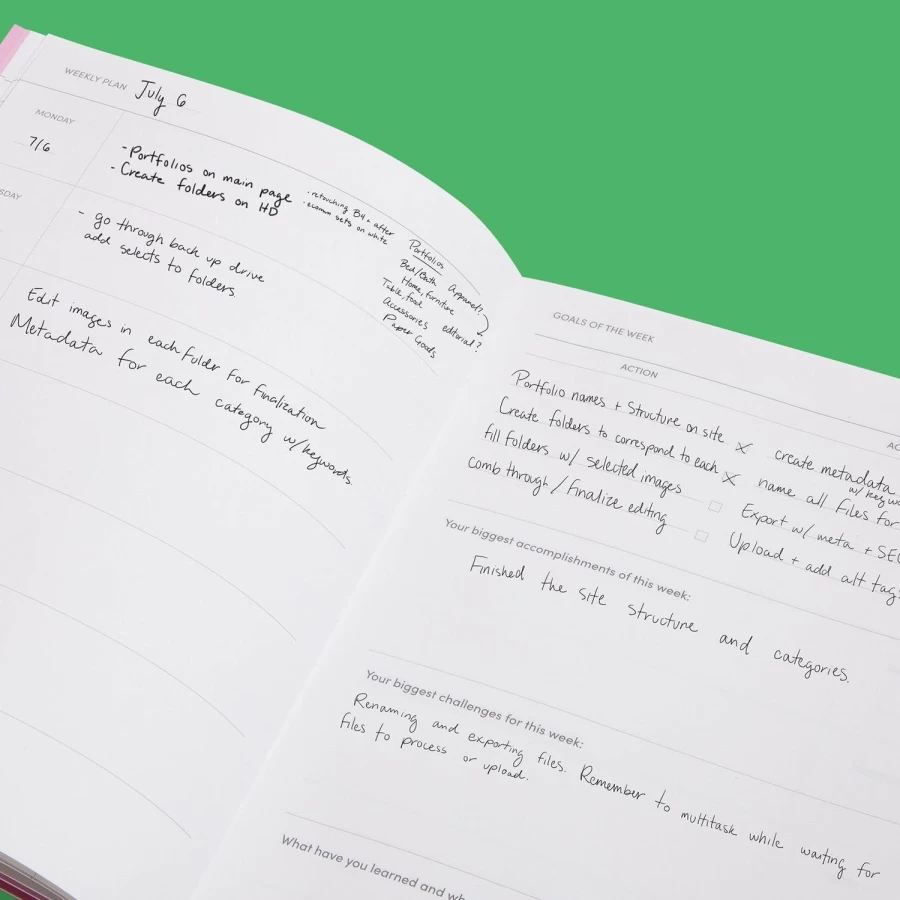 WEEKLY PLAN July 6
MONDAY
7/6
- Portfolios on main page
- Create folders on HD
· retouching B4 + after
· ecomm sets on white
Portfolios
Bed/Bath Apparel?
Home, furniture
Table, food
Accessories editorial?
Paper Goods
SDAY
- go through back up drive
add selects to folders
Edit images in each folder for finalization
Metadata for each category w/keywords.
GOALS OF THE WEEK
ACTION
Portfolio names + Structure on site
Create folders to correspond to each
fill folders w/ selected images
comb through / finalize editing
AC
create metadata
w/ keyw
name all files for
Export w/ meta + SEO
Upload + add alt tags
Your biggest accomplishments of this week:
Finished the site structure and categories.
Your biggest challenges for this week:
Renaming and exporting files. Remember to multitask while waiting for
files to process or upload.
What have you learned and wh